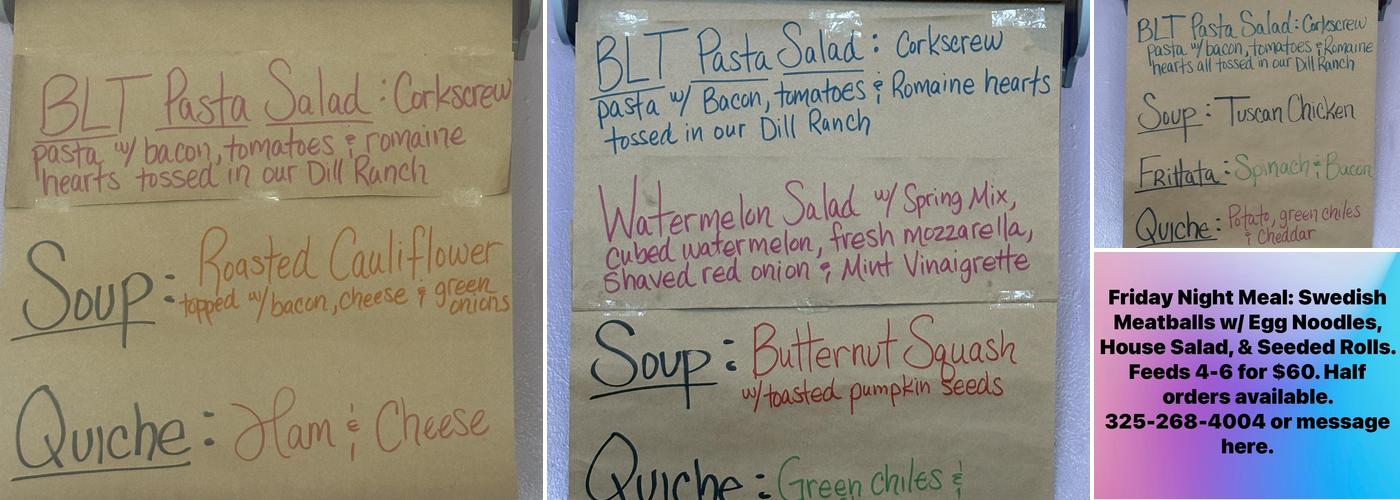 BLT Pasta Salad: Corkscrew
pasta w/ bacon, tomatoes & romaine
hearts tossed in our Dill Ranch
Soup: Roasted Cauliflower
topped w/bacon, cheese & green
onions
Quiche: Ham & Cheese
BLT Pasta Salad: Corkscrew
pasta w/ Bacon, tomatoes & Romaine hearts
tossed in our Dill Ranch
Watermelon Salad w/ Spring Mix,
cubed watermelon, fresh mozzarella,
shaved red onion & Mint Vinaigrette
Soup: Butternut Squash
w/toasted pumpkin seeds
Quiche: Green chiles &
BLT Pasta Salad: Corkscrew
pasta w/ bacon, tomatoes & Romaine
hearts all tossed in our Dill Ranch
Soup: Tuscan Chicken
Frittata: Spinach & Bacon
Quiche: Potato, green chiles
& Cheddar
Friday Night Meal: Swedish
Meatballs w/ Egg Noodles,
House Salad, & Seeded Rolls.
Feeds 4-6 for $60. Half
orders available.
325-268-4004 or message
here.